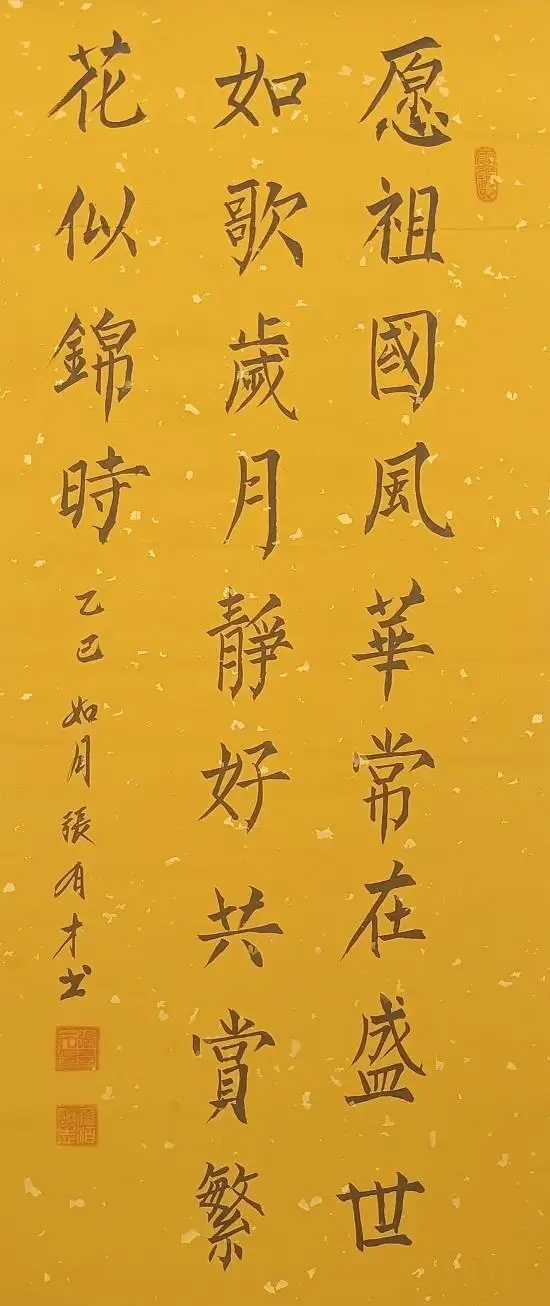 愿祖國風華常在盛世
如歌歲月靜好共賞繁
花似錦時
乙巳如月張有才书